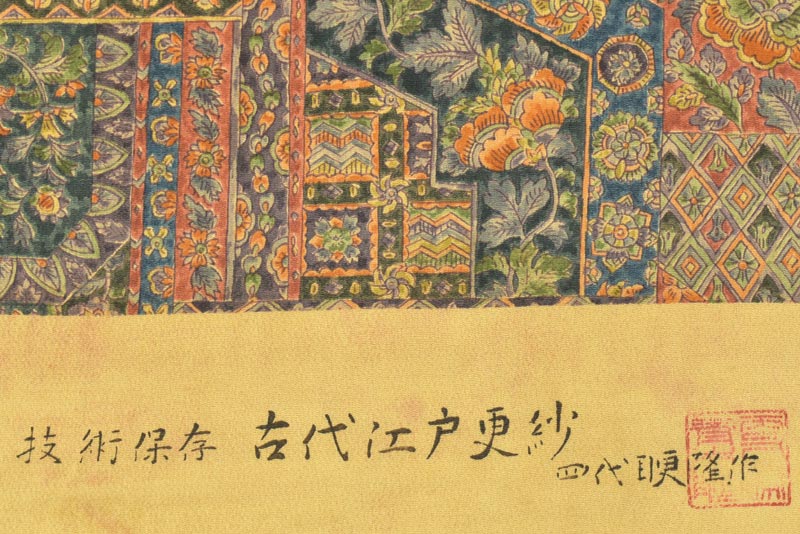 技術保存 古代江戸更紗
四代目更隆作